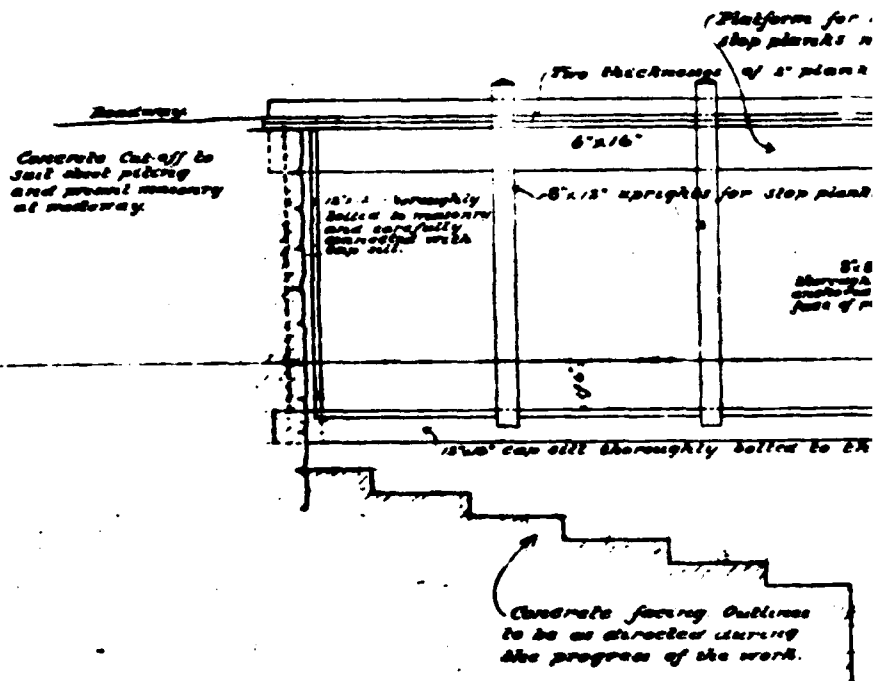 (Platform for
stop planks
Two thicknesses of 2" plank
Roadway.
6"x16"
Concrete Cut-off to
suit sheet piling
and present masonry
at roadway.
thoroughly
bolted to masonry
and carefully
connected with
cap sill.
8"x12" uprights for stop plank
anchored
face of
cap sill thoroughly bolted to
Concrete facing Outlines
to be as directed during
the progress of the work.